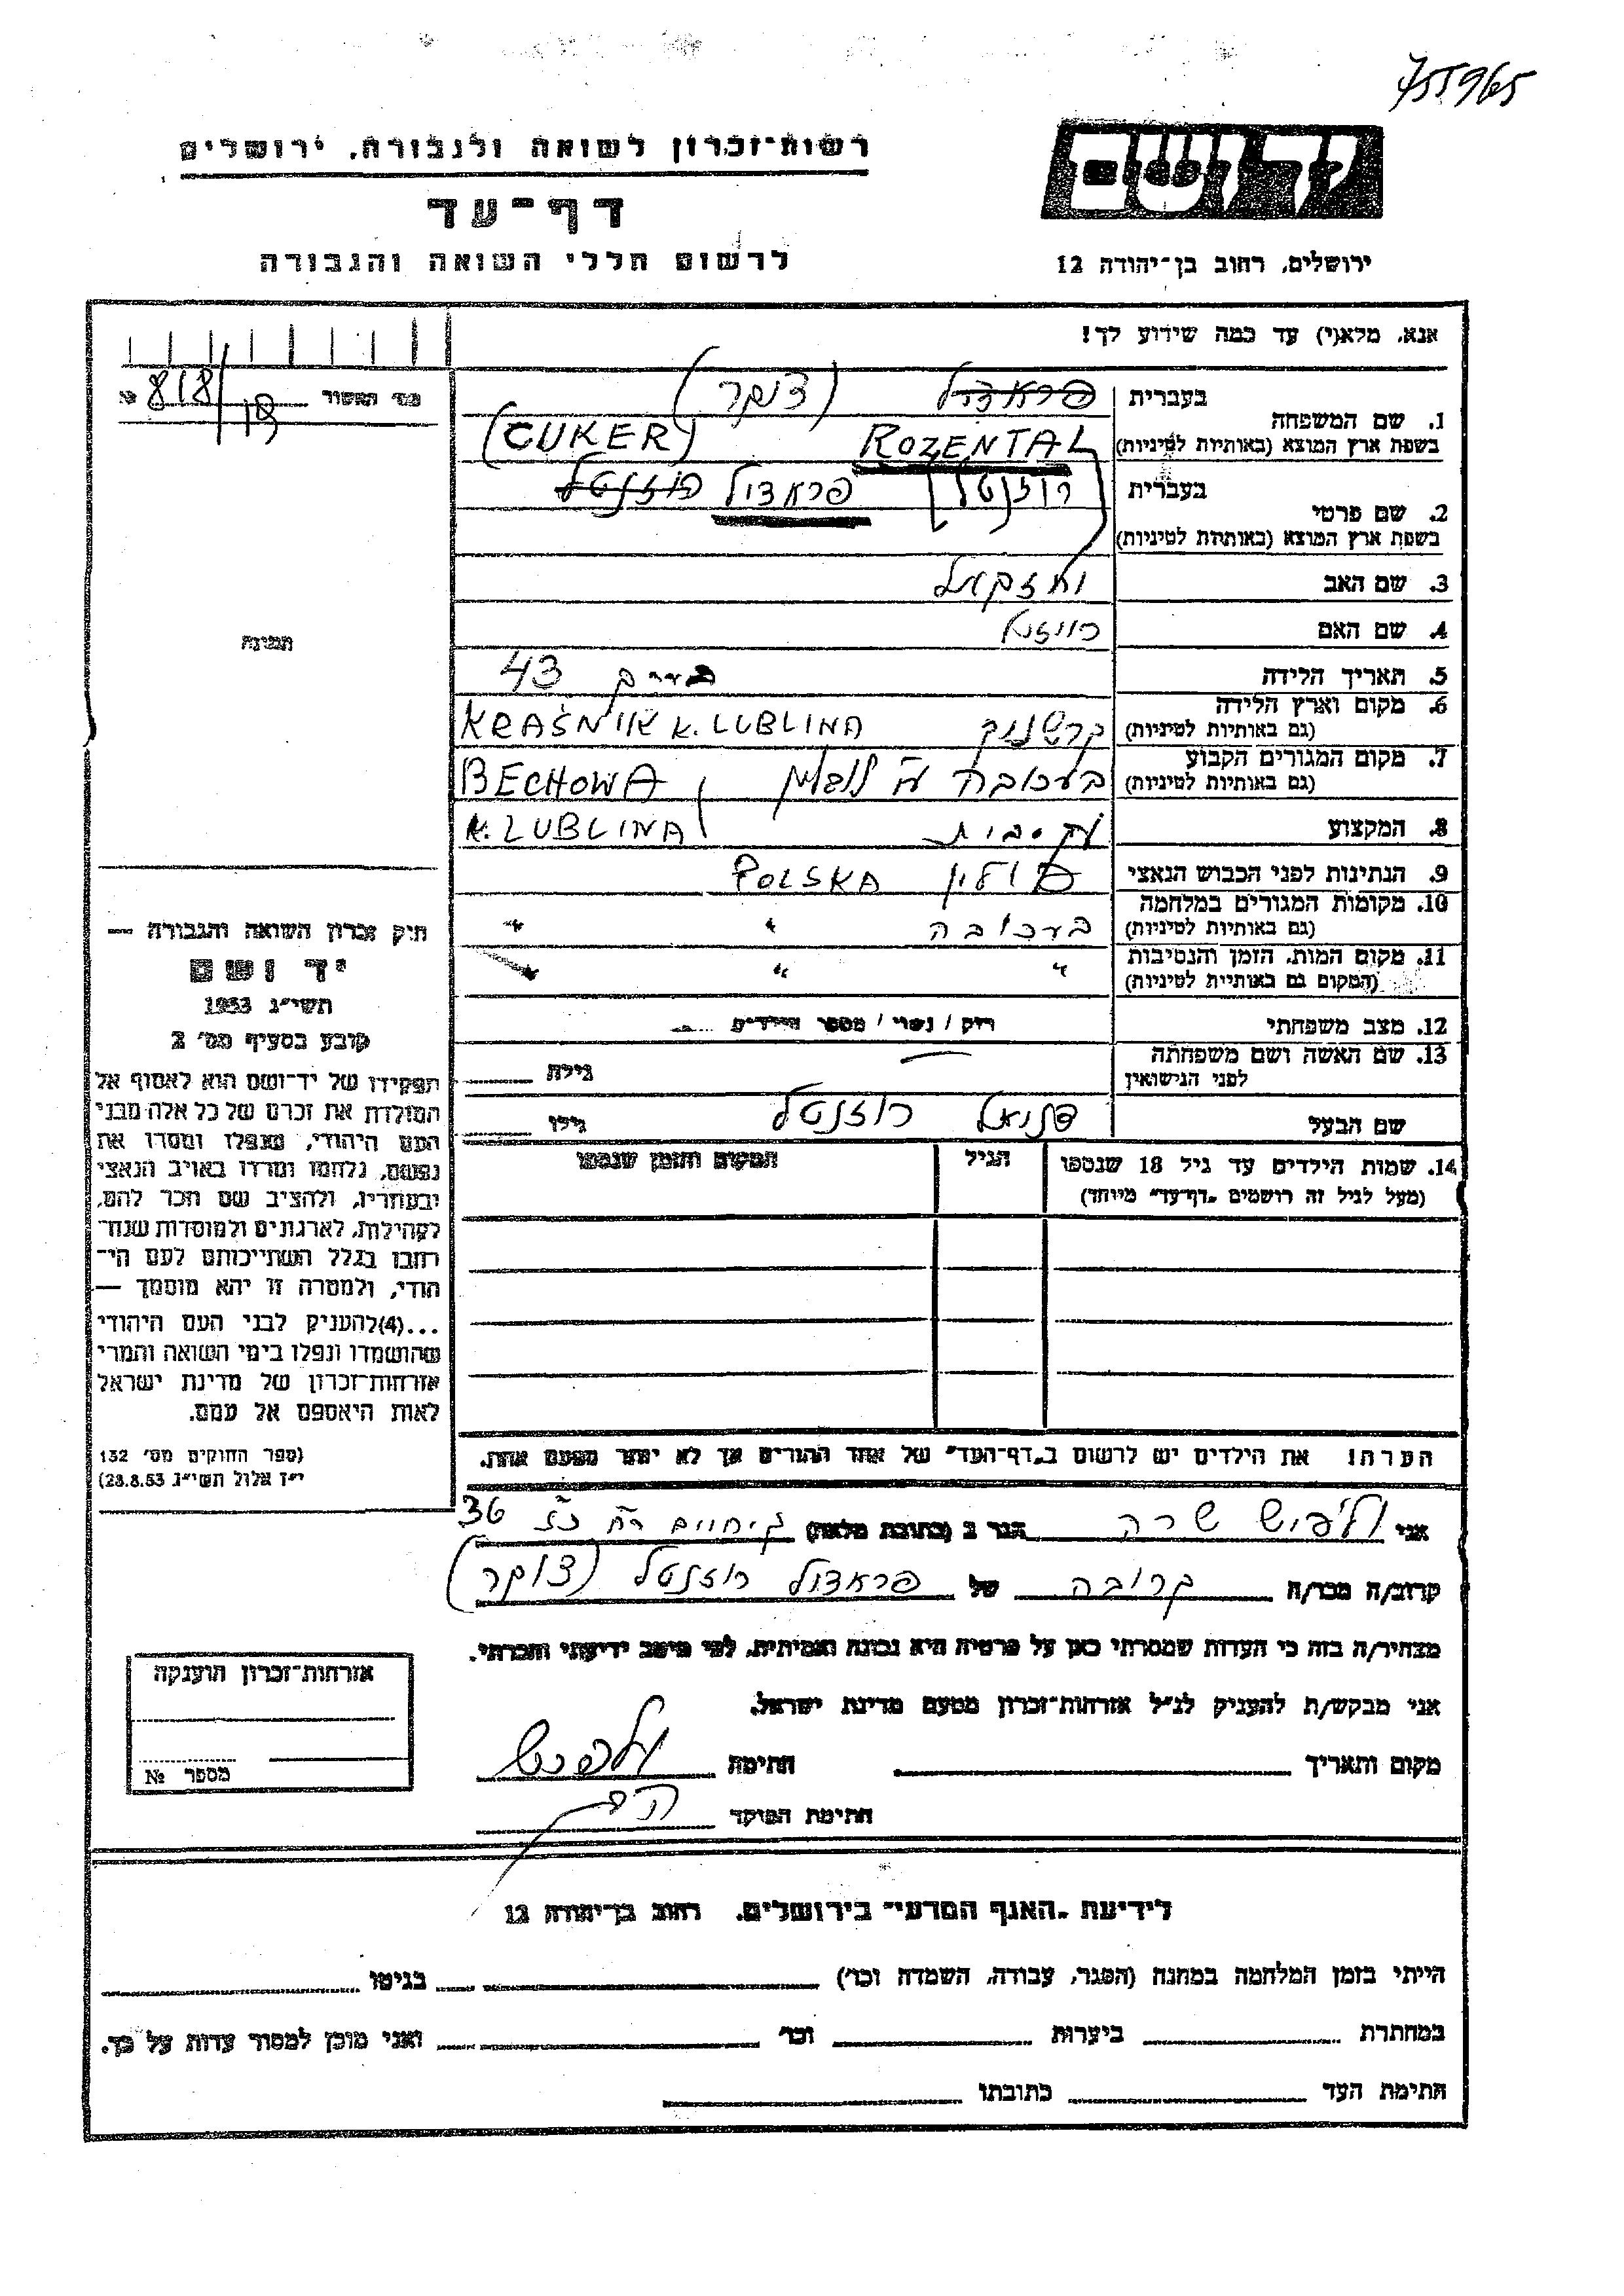 755965
רשות־זכרון לשואה ולגבורה, ירושלים
דף־עד
לרשום חללי השואה והגבורה
ירושלים, רחוב בן־יהודה 12
אנא, מלא(י) עד כמה שידוע לך!
מס' האשור 818/19 №
1. שם המשפחה
בעברית פראדזל (צוקר)
בשפת ארץ המוצא (באותיות לטיניות) ROZENTAL (CUKER)
2. שם פרטי
בעברית [רוזנטל] פראדזל רוזנטל
בשפת ארץ המוצא (באותיות לטיניות)
3. שם האב יחזקאל
4. שם האם
5. תאריך הלידה 43
6. מקום וארץ הלידה
(גם באותיות לטיניות) קרשניק KRAŚNIK K. LUBLINA
7. מקום המגורים הקבוע
(גם באותיות לטיניות) בעכובה ע"י לובלין BECHOWA
8. המקצוע עק. בית K. LUBLINA
9. הנתינות לפני הכבוש הנאצי פולין POLSKA
10. מקומות המגורים במלחמה
(גם באותיות לטיניות) בעכובה " "
11. מקום המות, הזמן והנסיבות
(המקום גם באותיות לטיניות) " " "
12. מצב משפחתי רוק / נשוי / מספר הילדים
13. שם האשה ושם משפחתה
לפני הנישואין — גילה
שם הבעל דניאל רוזנטל גילו
14. שמות הילדים עד גיל 18 שנספו
(מעל לגיל זה רושמים "דף־עד" מיוחד)
הגיל
המקום והזמן שנספו
הערה! את הילדים יש לרשום ב"דף־העד" של אחד ההורים אך לא יותר מפעם אחת.
תמונה
חוק זכרון השואה והגבורה —
יד ושם
תשי"ג 1953
קובע בסעיף מס' 2
תפקידו של יד־ושם הוא לאסוף אל
המולדת את זכרם של כל אלה מבני
העם היהודי, שנפלו ומסרו את
נפשם, נלחמו ומרדו באויב הנאצי
ובעוזריו, ולהציב שם וזכר להם,
לקהילות, לארגונים ולמוסדות שנח־
רבו בגלל השתייכותם לעם הי־
הודי, ולמטרה זו יהא מוסמך —
...(4)להעניק לבני העם היהודי
שהושמדו ונפלו בימי השואה והמרי
אזרחות־זכרון של מדינת ישראל
לאות היאספם אל עמם.
(ספר החוקים מס' 132
י"ז אלול תשי"ג 28.8.53)
אני ולפיש שרה הגר ב (כתובת מלאה) גיחיים רח' 36
קרוב/ה מכר/ה קרובה של פראדזל רוזנטל (צוקר)
מצהיר/ה בזה כי העדות שמסרתי כאן על פרטיה היא נכונה ואמיתית, לפי מיטב ידיעתי והכרתי.
אני מבקש/ת להעניק לנ"ל אזרחות־זכרון מטעם מדינת ישראל.
מקום ותאריך חתימה ולפיש
חתימת הפוקד
אזרחות־זכרון הוענקה
מספר №
לידיעת "האגף המדעי" בירושלים, רחוב בן־יהודה 12
הייתי בזמן המלחמה במחנה (הסגר, עבודה, השמדה וכו') בגיטו
במחתרת ביערות וכו' ואני מוכן למסור עדות על כך.
חתימת העד כתובתו